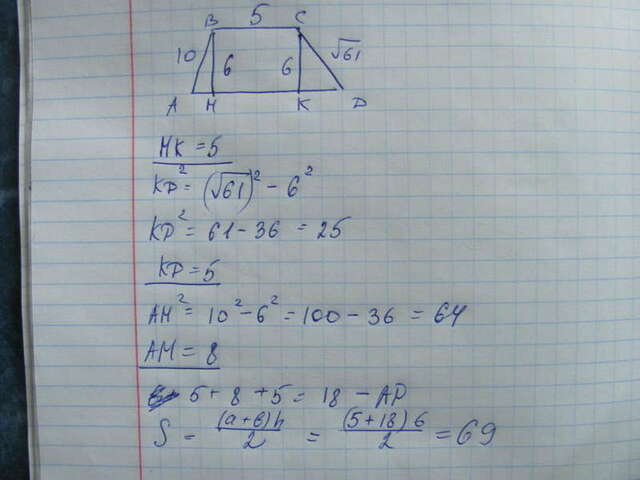 B 5 C
10 6 6 √61
A H K D
HK = 5
KD² = (√61)² - 6²
KD² = 61 - 36 = 25
KD = 5
AH² = 10² - 6² = 100 - 36 = 64
AH = 8
5 + 8 + 5 = 18 - AD
S = (a+b)h/2 = (5+18)6/2 = 69